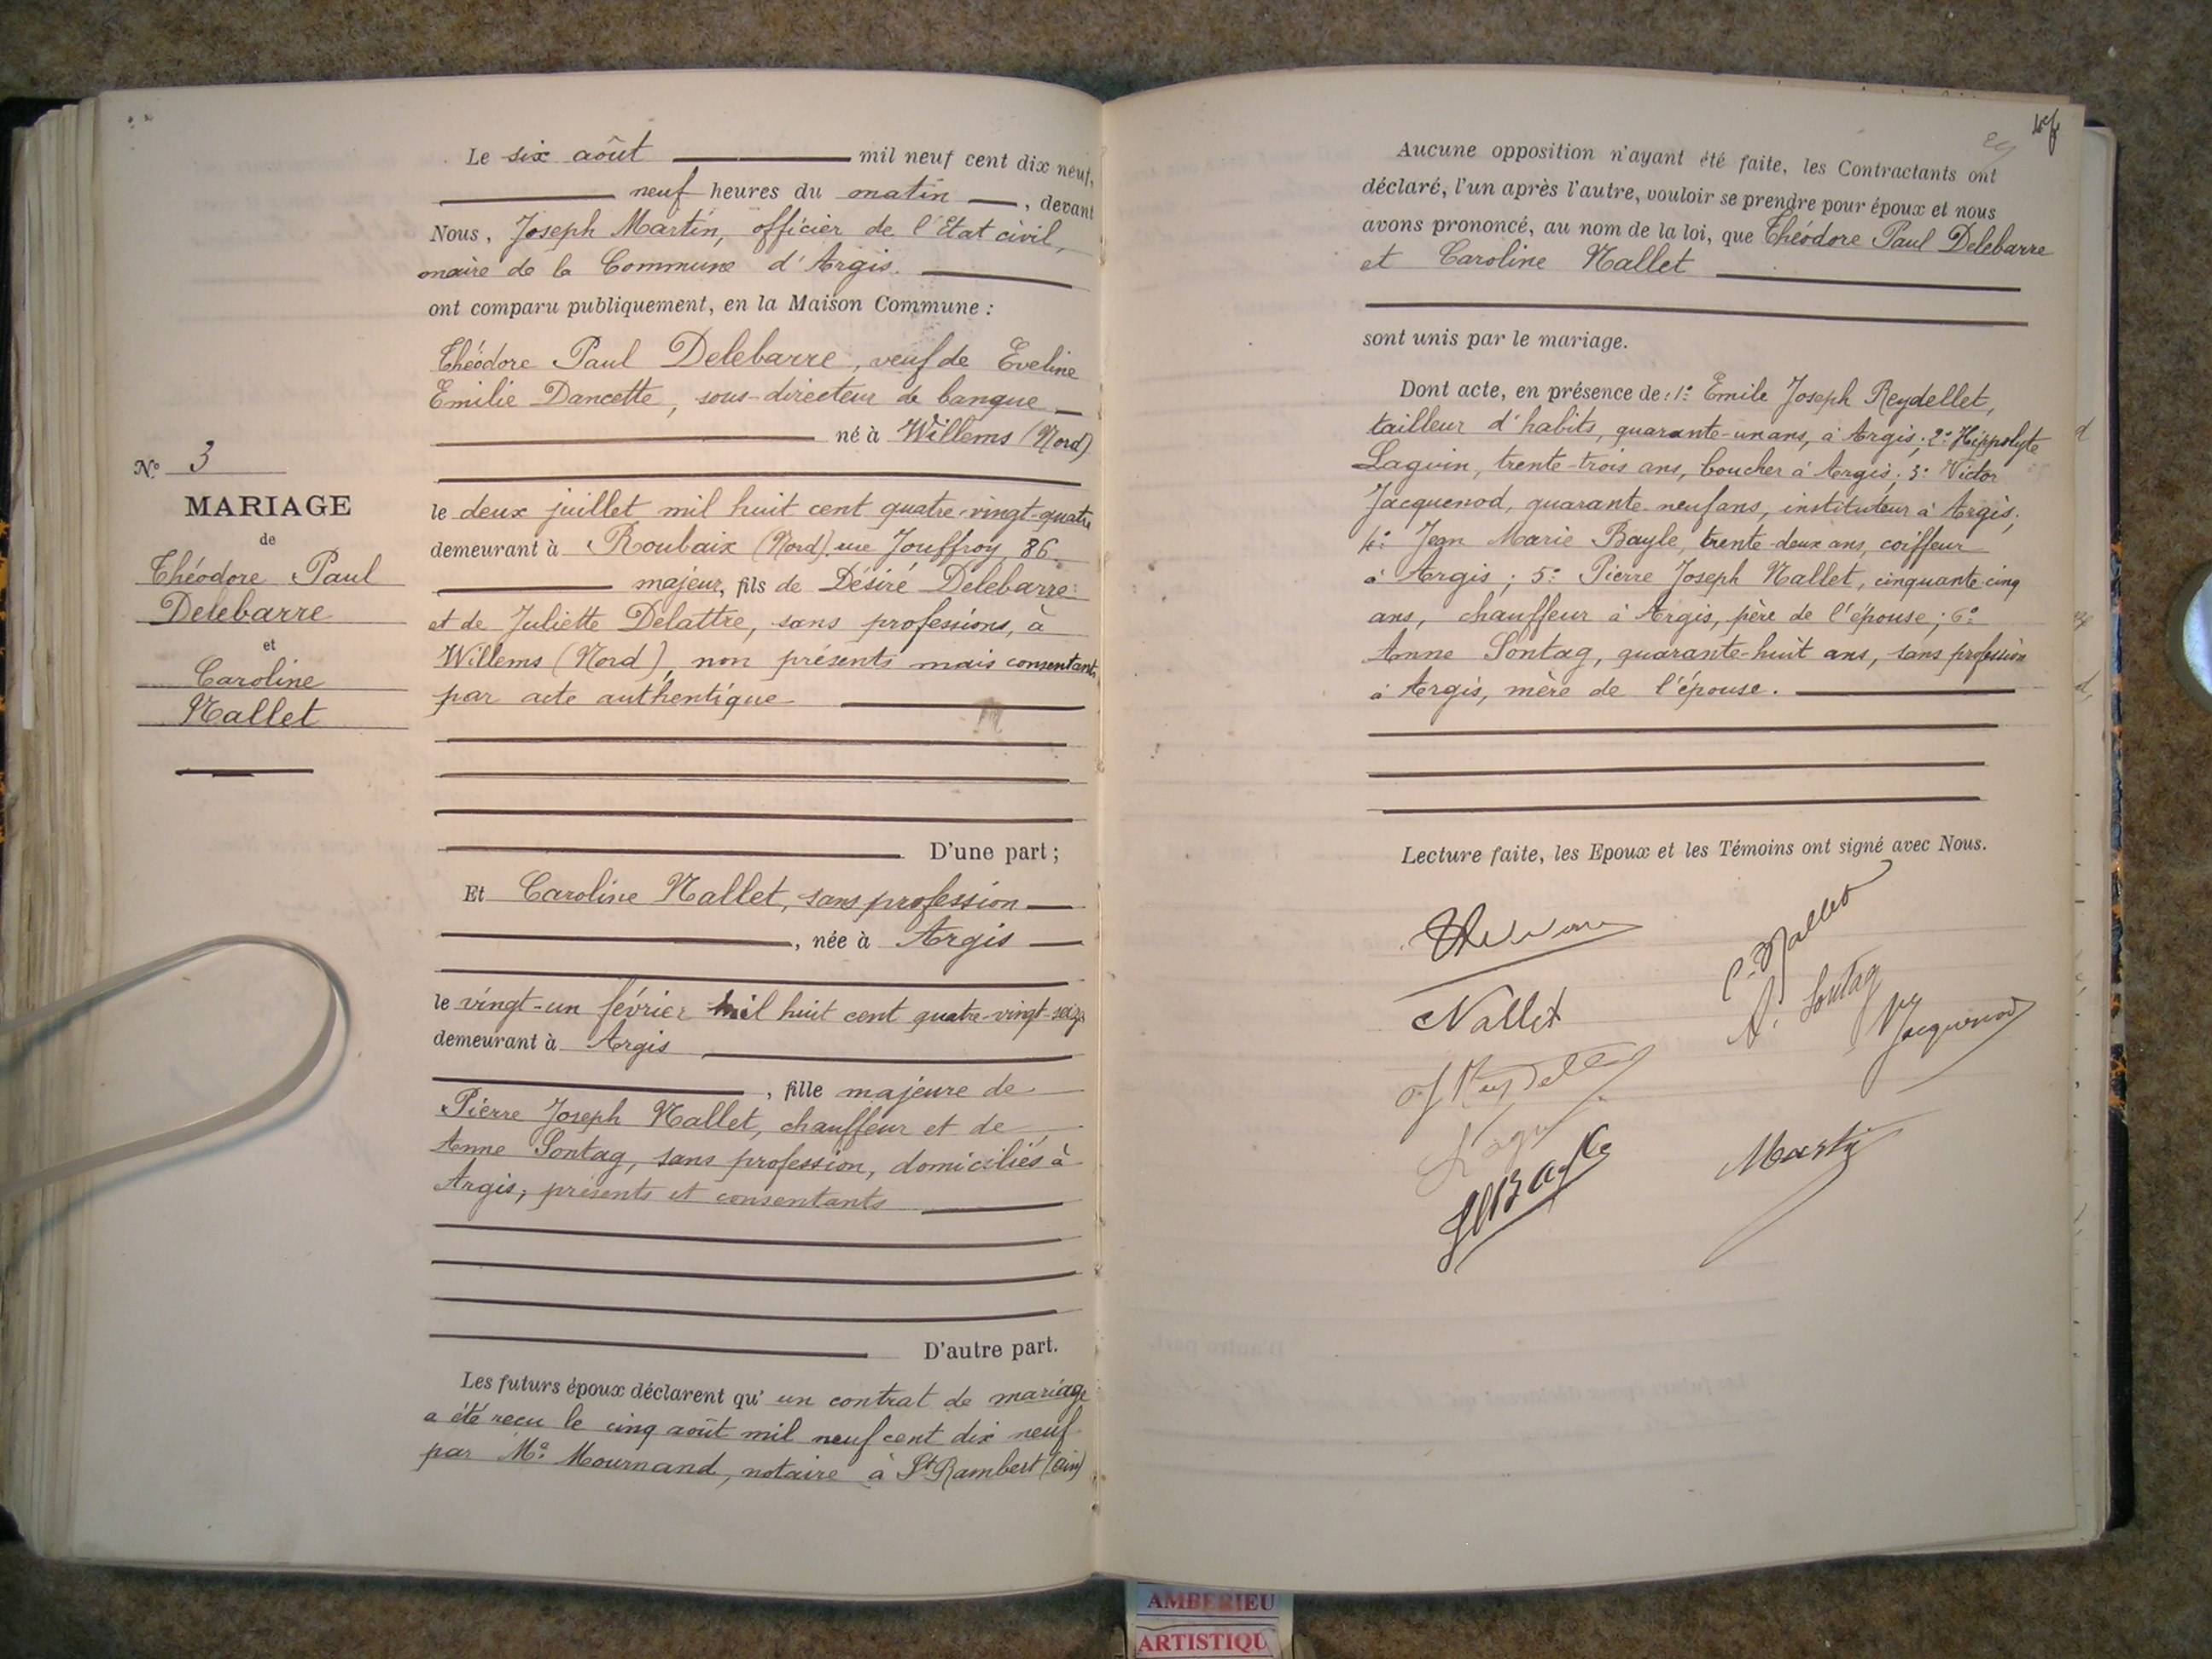 Le six août mil neuf cent dix neuf,
neuf heures du matin, devant
Nous, Joseph Martin, officier de l'Etat civil,
maire de la Commune d'Argis.
ont comparu publiquement, en la Maison Commune :
Théodore Paul Delebarre, veuf de Eveline
Emilie Dancette, sous-directeur de banque
né à Willems (Nord)
le deux juillet mil huit cent quatre-vingt-quatre
demeurant à Roubaix (Nord) rue Jouffroy, 86.
majeur, fils de Désiré Delebarre
et de Juliette Delattre, sans professions, à
Willems (Nord), non présents mais consentants
par acte authentique
D'une part ;
Et Caroline Nallet, sans profession
, née à Argis
le vingt-un février mil huit cent quatre-vingt-seize
demeurant à Argis
, fille majeure de
Pierre Joseph Nallet, chauffeur et de
Anne Sontag, sans profession, domiciliés à
Argis, présents et consentants
D'autre part.
Les futurs époux déclarent qu' un contrat de mariage
a été reçu le cinq août mil neuf cent dix neuf
par Me Mournand, notaire à St Rambert (Ain)
No 3
MARIAGE
de
Théodore Paul
Delebarre
et
Caroline
Nallet
Aucune opposition n'ayant été faite, les Contractants ont
déclaré, l'un après l'autre, vouloir se prendre pour époux et nous
avons prononcé, au nom de la loi, que Théodore Paul Delebarre
et Caroline Nallet
sont unis par le mariage.
Dont acte, en présence de : 1° Emile Joseph Reydellet,
tailleur d'habits, quarante-un ans, à Argis ; 2° Hippolyte
Laguin, trente-trois ans, boucher à Argis ; 3° Victor
Jacquenod, quarante-neuf ans, instituteur à Argis ;
4° Jean Marie Bayle, trente-deux ans, coiffeur
à Argis ; 5° Pierre Joseph Nallet, cinquante-cinq
ans, chauffeur à Argis, père de l'épouse ; 6°
Anne Sontag, quarante-huit ans, sans profession
à Argis, mère de l'épouse.
Lecture faite, les Epoux et les Témoins ont signé avec Nous.
C. Nallet
Nallet
A. Sontag
Jacquenod
Reydellet
Bayle
Martin
AMBERIEU
ARTISTIQU